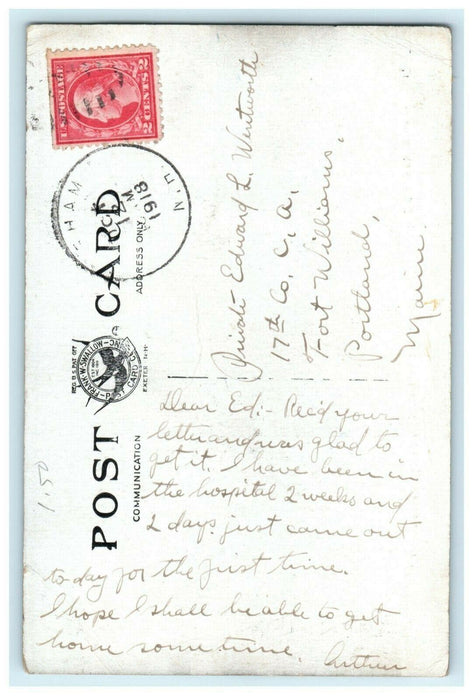 U.S. POSTAGE
2 CENTS 2
HAM
M
1918
N.H.
POST CARD
ADDRESS ONLY
COMMUNICATION
REG. U.S. PAT. OFF.
FRANK W. SWALLOW
POST CARD CO.
INC.
EXETER N.H.
Private Edward L. Whitworth
17th Co. C. A.
Fort Williams,
Portland,
Maine.
1.50
Dear Ed:- Rec'd your
letter and was glad to
get it. I have been in
the hospital 2 weeks and
2 days. just came out
to day for the first time.
I hope I shall be able to get
home some time. Arthur